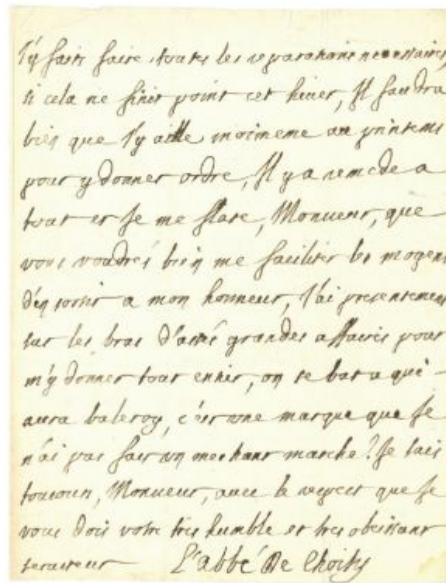 j'y fasse faire toutes les reparations necessaires,
si cela ne finit point cet hiver, Il faudra
bien que j'y aille moimeme au printems
pour y donner ordre, Il y a remede a
tout et Je me flate, Monsieur, que
vous voudrés bien me faciliter les moyens
d'en sortir a mon honneur, J'ai presentement
sur les bras d'assés grandes affaires pour
m'y donner tout entier, on se bat a qui
aura baleroy, c'est une marque que Je
n'ai pas fait un mechant marché. Je suis
toujours, Monsieur, avec le respect que Je
vous dois votre tres humble et tres obeissant
serviteur L'abbé De Choisy